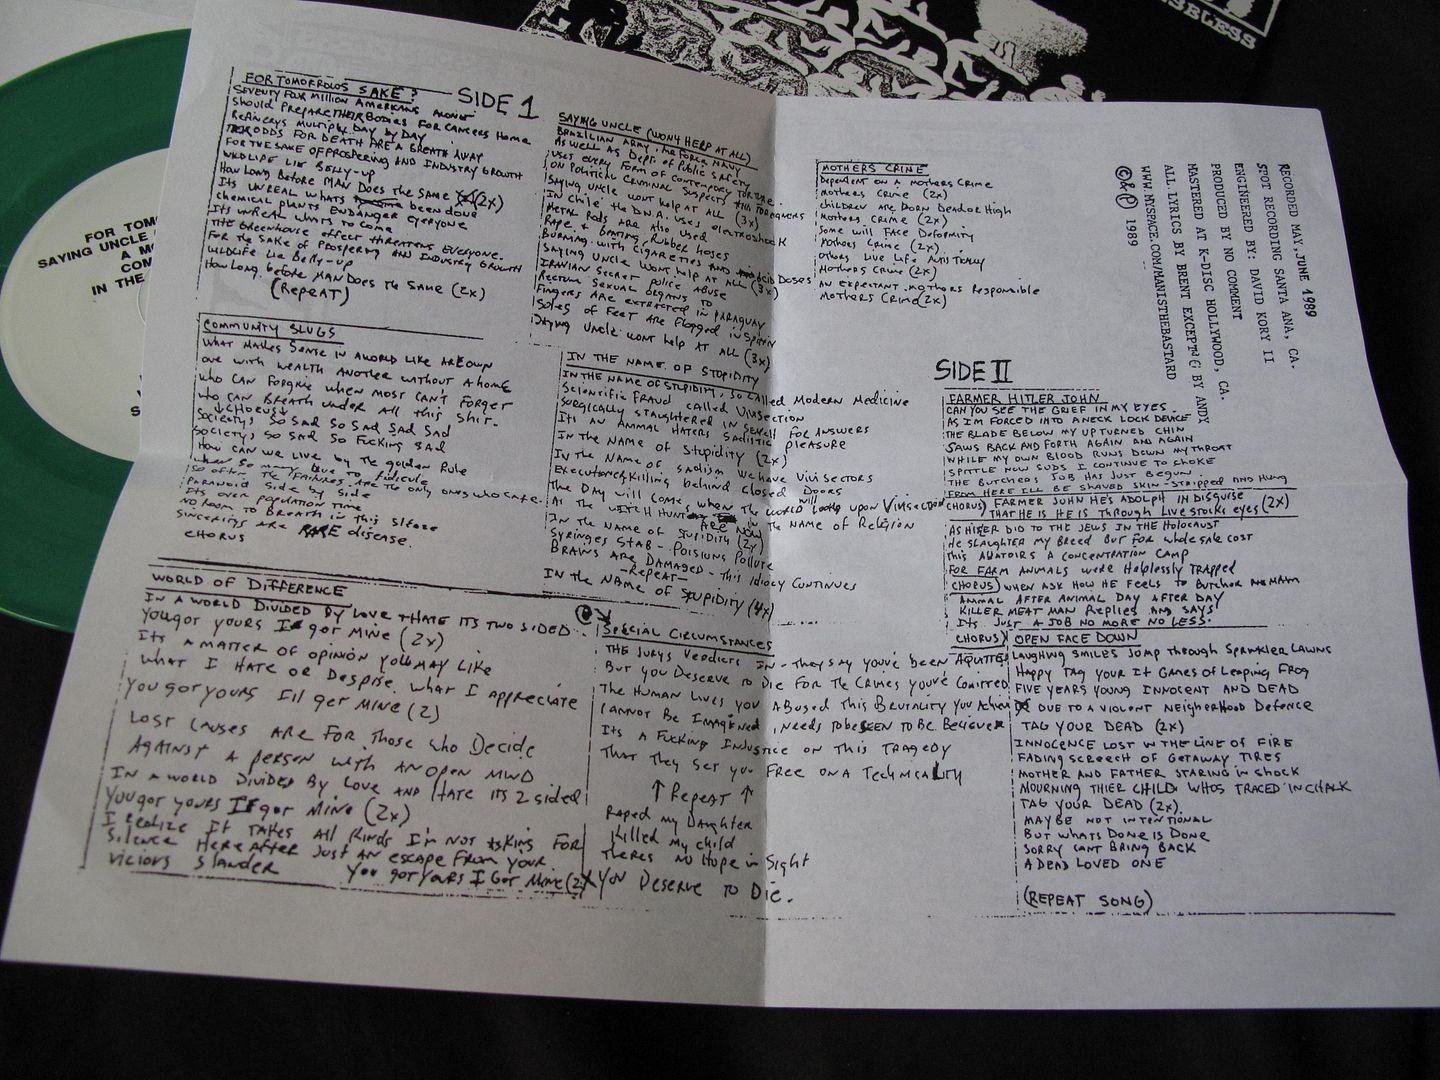 SELESS
FOR TOM
SAYING UNCLE
A MO
COM
IN THE
SIDE 1
FOR TOMORROWS SAKE?
SEVENTY FOUR MILLION AMERICANS ALONE
Should PREPARE THEIR BODIES FOR CANCERS Home
REFINERYS MULTIPLY DAY by DAY
ODDS FOR DEATH ARE A BREATH AWAY
FOR THE SAKE OF PROSPERING AND INDUSTRY GROWTH
WILDLIFE LIE BELLY-UP
How Long Before MAN Does the SAME (2x)
Its UNREAL whats been done
chemical plants ENDANGER everyone
Its UNREAL whats to come
THE Greenhouse effect threatens EVERYONE.
For the SAKE of Prospering AND Industry Growth
WILDLIFE Lie Belly-up
How Long before MAN Does the SAME (2x)
(Repeat)
SAYING UNCLE (WON'T HELP AT ALL)
BRAZILIAN ARMY, Air Force NAVY
As WELL AS Dept. of Public SAFETY
uses every Form of contempory Torture
ON Political Criminal Suspects Foreigners
SAYING UNCLE wont help AT ALL (3x)
IN Chile the D.N.A. uses electroshock
METAL RODS ARE Also used
Rape & Beating, Rubber hoses
Burning with CIGARETTES AND Acid Doses
SAYING UNCLE Wont help AT ALL (3x)
IRANIAN Secret police Abuse
Rectum Sexual organs to
Fingers ARE extracted in PARAGUAY
Soles of Feet Are Flogged in Spain
Saying Uncle wont help AT ALL (3x)
COMMUNITY SLUGS
WHAT MAKES SENSE IN A WORLD LIKE ARE OWN
one with WEALTH ANOTHER WITHOUT A home
who CAN Forgive when MOST CAN'T Forget
who CAN Breath under All this shit.
↓CHORUS↓
Societys So SAD So SAD SAD SAD
Societys so SAD So Fucking SAD
How CAN we Live by the golden Rule
when So many Due to Ridicule
So often the failures. ARE the only ones who CARE.
Paranoid side by side
Its over population time
No Room to Breath in this Sleaze
Sincerity ARE RARE disease.
CHORUS
IN THE NAME OF STUPIDITY
IN THE NAME OF STUPIDITY, SO CALLED Modern Medicine
Scientific Fraud called Vivisection
Surgically slaughtered in Search For Answers
Its AN ANIMAL HATERS SADISTIC pleasure
IN the NAME of Stupidity (2x)
In the NAME of SADISM we have Vivi SECTORS
Execution & Killing behind closed Doors
The DAY will come when the world will look upon Vivisection
As the WITCH HUNT ARE NOW in the NAME of Religion
IN the NAME of Stupidity (2x)
SYRINGES STAB - POISIONS POLLUTE
BRAINS ARE DAMAGED - This Idiocy CONTINUES
-REPEAT-
IN the NAME of STUPIDITY (4x)
WORLD OF DIFFERENCE
IN A WORLD DIVIDED BY LOVE + HATE ITS TWO SIDED
You got yours I got MINE (2x)
Its A MATTER of opinion you MAY LIKE
what I HATE or Despise. what I appreciate
You got yours Ill get MINE (2)
LOST CAUSES ARE FOR Those who Decide
AGAINST A person with AN OPEN MIND
IN A WORLD DIVIDED By Love AND HATE ITS 2 sided
You got yours I got MINE (2x)
I REALIZE IT TAKES All KINDS I'm NOT ASKING FOR
Silence Here After JUST AN escape From your
vicious slander You got yours I Got Mine (2x)
SPECIAL CIRCUMSTANCES
THE Jurys Verdicts IN - They say you've been AQUITTED
But you Deserve to Die For The CRIMES You've Comitted
The Human Lives you Abused This Brutality You
CANNOT Be Imagined Needs To be SEEN TO BE Believer
Its A Fucking Injustice ON This TRAGEDY
That They Set you FREE ON A TechNICALITY
↑ Repeat ↑
Raped my Daughter
Killed My child
Theres NO Hope in Sight
You Deserve to Die.
MOTHERS CRIME
Dependent ON A MOTHERS CRIME
MOTHERS CRIME (2x)
CHILDREN ARE BORN DEAD or High
MOTHERS CRIME (2x)
Some will FACE Deformity
Mothers Crime (2x)
Others Live Life Artistically
Mothers Crime (2x)
AN EXPECTANT MOTHERS Responsible
Mothers Crime (2x)
RECORDED MAY, JUNE 1989
SPOT RECORDING SANTA ANA, CA.
ENGINEERED BY: DAVID KORY II
PRODUCED BY NO COMMENT
MASTERED AT K-DISC HOLLYWOOD, CA.
ALL LYRICS BY BRENT EXCEPTING BY ANDY
WWW.MYSPACE.COM/MANISTHEBASTARD
©&℗ 1989
SIDE II
FARMER HITLER JOHN
CAN YOU SEE THE GRIEF IN MY EYES
AS IM FORCED INTO A NECK LOCK DEVICE
THE BLADE BELOW MY UPTURNED CHIN
SAWS BACK AND FORTH AGAIN AND AGAIN
WHILE MY OWN BLOOD RUNS DOWN MY THROAT
SPITTLE NOW SUDS I CONTINUE TO CHOKE
THE BUTCHERS JOB HAS JUST BEGUN
FROM HERE ILL BE SHAVED SKIN-STRIPPED AND HUNG
CHORUS) FARMER JOHN HE'S ADOLPH IN DISGUISE
THAT HE IS HE IS THROUGH LIVESTOCKS EYES (2x)
AS HITLER DID TO THE JEWS IN THE HOLOCAUST
He SLAUGHTER MY BREED BUT FOR WHOLESALE COST
THIS ABATOIRS A CONCENTRATION CAMP
FOR FARM ANIMALS WERE HELPLESSLY TRAPPED
CHORUS) WHEN ASK HOW HE FEELS TO BUTCHER AND MAIM
ANIMAL AFTER ANIMAL DAY AFTER DAY
KILLER MEAT MAN Replies AND SAYS
ITS JUST A JOB NO MORE NO LESS.
CHORUS)
OPEN FACE DOWN
LAUGHING SMILES JUMP THROUGH SPRINKLER LAWNS
HAPPY TAG YOUR IT GAMES OF LEAPING FROG
FIVE YEARS YOUNG INNOCENT AND DEAD
DUE TO A VIOLENT NEIGHBERHOOD DEFENCE
TAG YOUR DEAD (2x)
INNOCENCE LOST IN THE LINE OF FIRE
FADING SCREECH OF GETAWAY TIRES
MOTHER AND FATHER STARING IN SHOCK
MOURNING THIER CHILD WHOS TRACED IN CHALK
TAG YOUR DEAD (2x)
MAYBE NOT INTENTIONAL
BUT WHATS DONE IS DONE
SORRY CANT BRING BACK
A DEAD LOVED ONE
(REPEAT SONG)